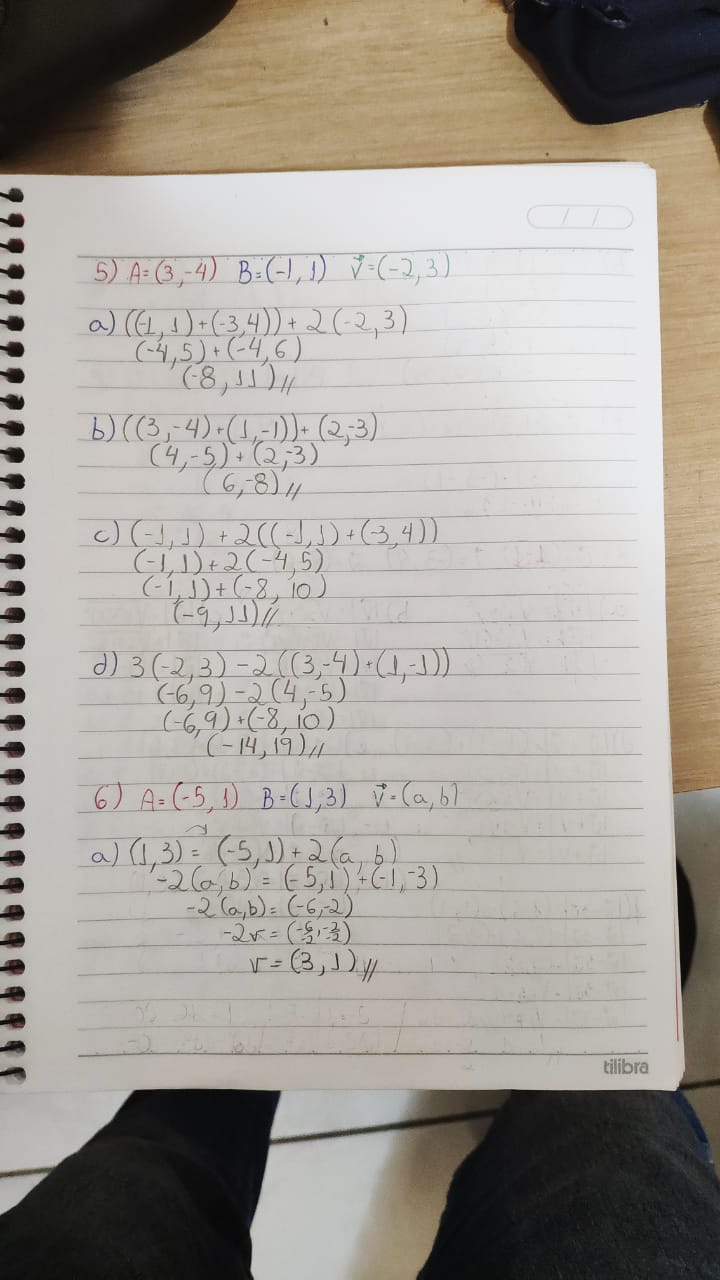 / /
5) A=(3,-4) B=(-1,1) v⃗=(-2,3)
a) ((-1,1)+(-3,4))+2(-2,3)
(-4,5)+(-4,6)
(-8,11)//
b) ((3,-4)+(1,-1))+(2,-3)
(4,-5)+(2,-3)
(6,-8)//
c) (-1,1)+2((-1,1)+(-3,4))
(-1,1)+2(-4,5)
(-1,1)+(-8,10)
(-9,11)//
d) 3(-2,3)-2((3,-4)+(1,-1))
(-6,9)-2(4,-5)
(-6,9)+(-8,10)
(-14,19)//
6) A=(-5,1) B=(1,3) v⃗=(a,b)
a) (1,3)=(-5,1)+2(a,b)
-2(a,b)=(-5,1)+(-1,-3)
-2(a,b)=(-6,-2)
-2v=(-6/-2,-2/-2)
v=(3,1)//
tilibra